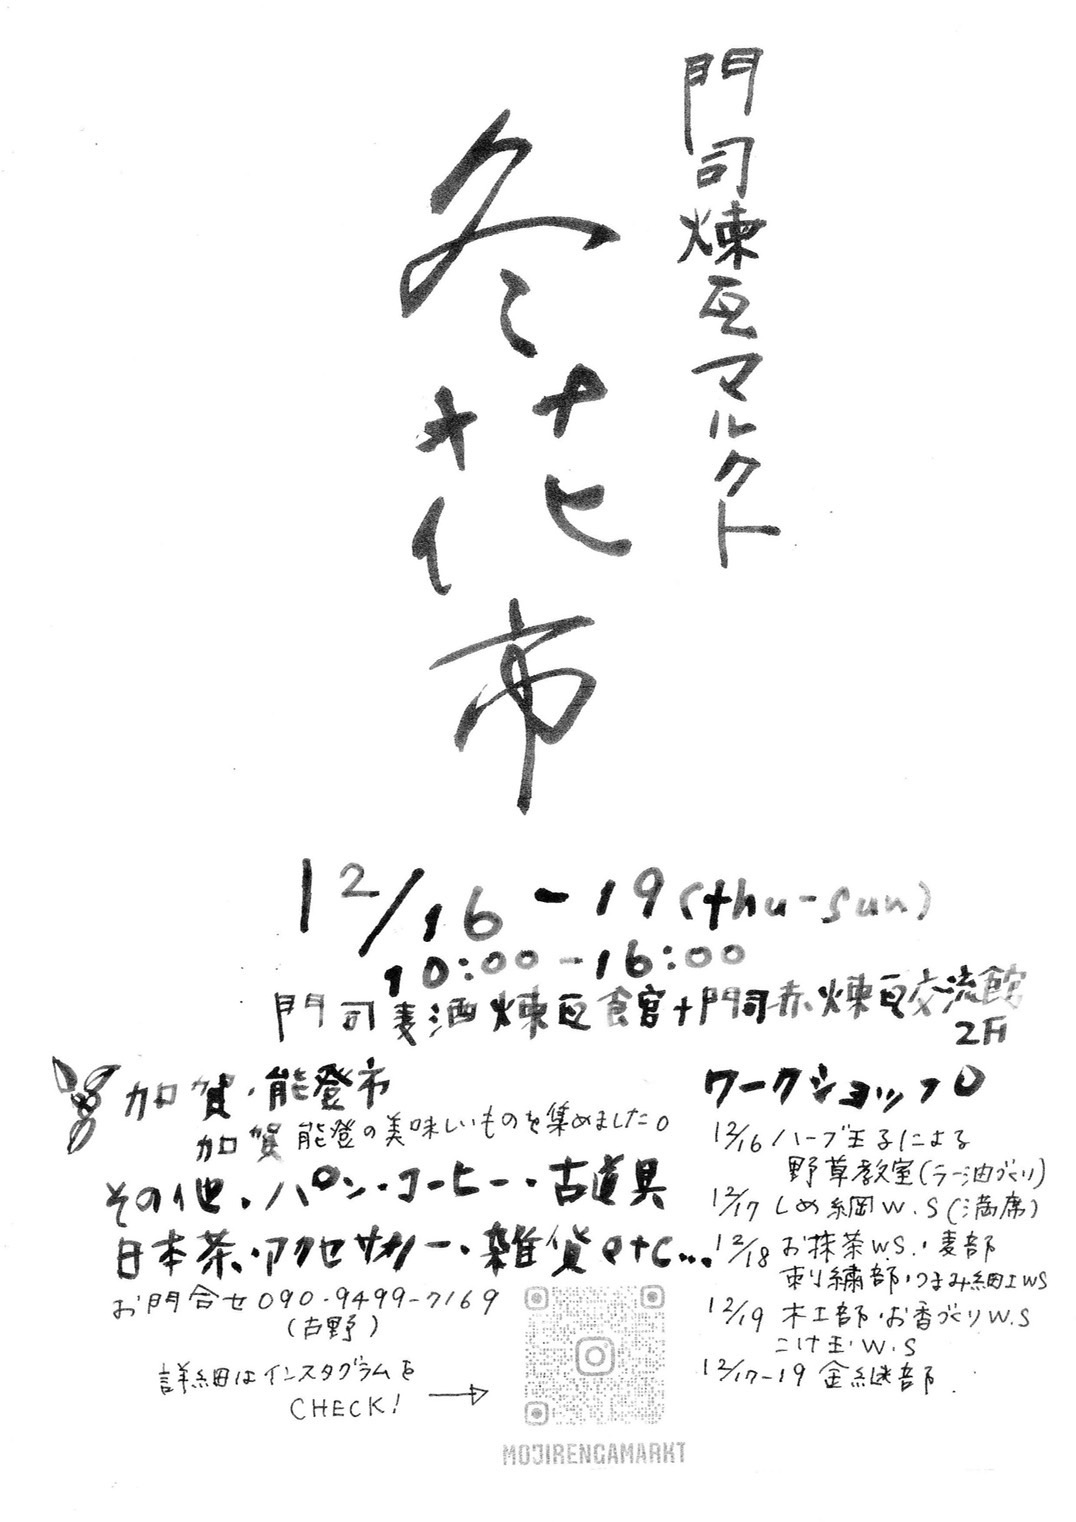 門司煉瓦マルクト
冬花市
12/16-19(thu-sun)
10:00-16:00
門司麦酒煉瓦館+門司赤煉瓦交流館
2F
加賀・能登市
加賀能登の美味しいものを集めました。
その他・パン・コーヒー・古道具
日本茶・アクセサリー・雑貨etc...
お問合せ090-9499-7169
(古野)
詳細はインスタグラムを
CHECK!
MOJIRENGAMARKT
ワークショップ
12/16 ハーブ王子による
野草教室(ラー油づくり)
12/17 しめ縄W.S(満席)
12/18 お抹茶WS.・麦部
刺繍部・つまみ細工WS
12/19 木工部・お香づくりW.S
こけ玉W.S
12/17-19 金継部